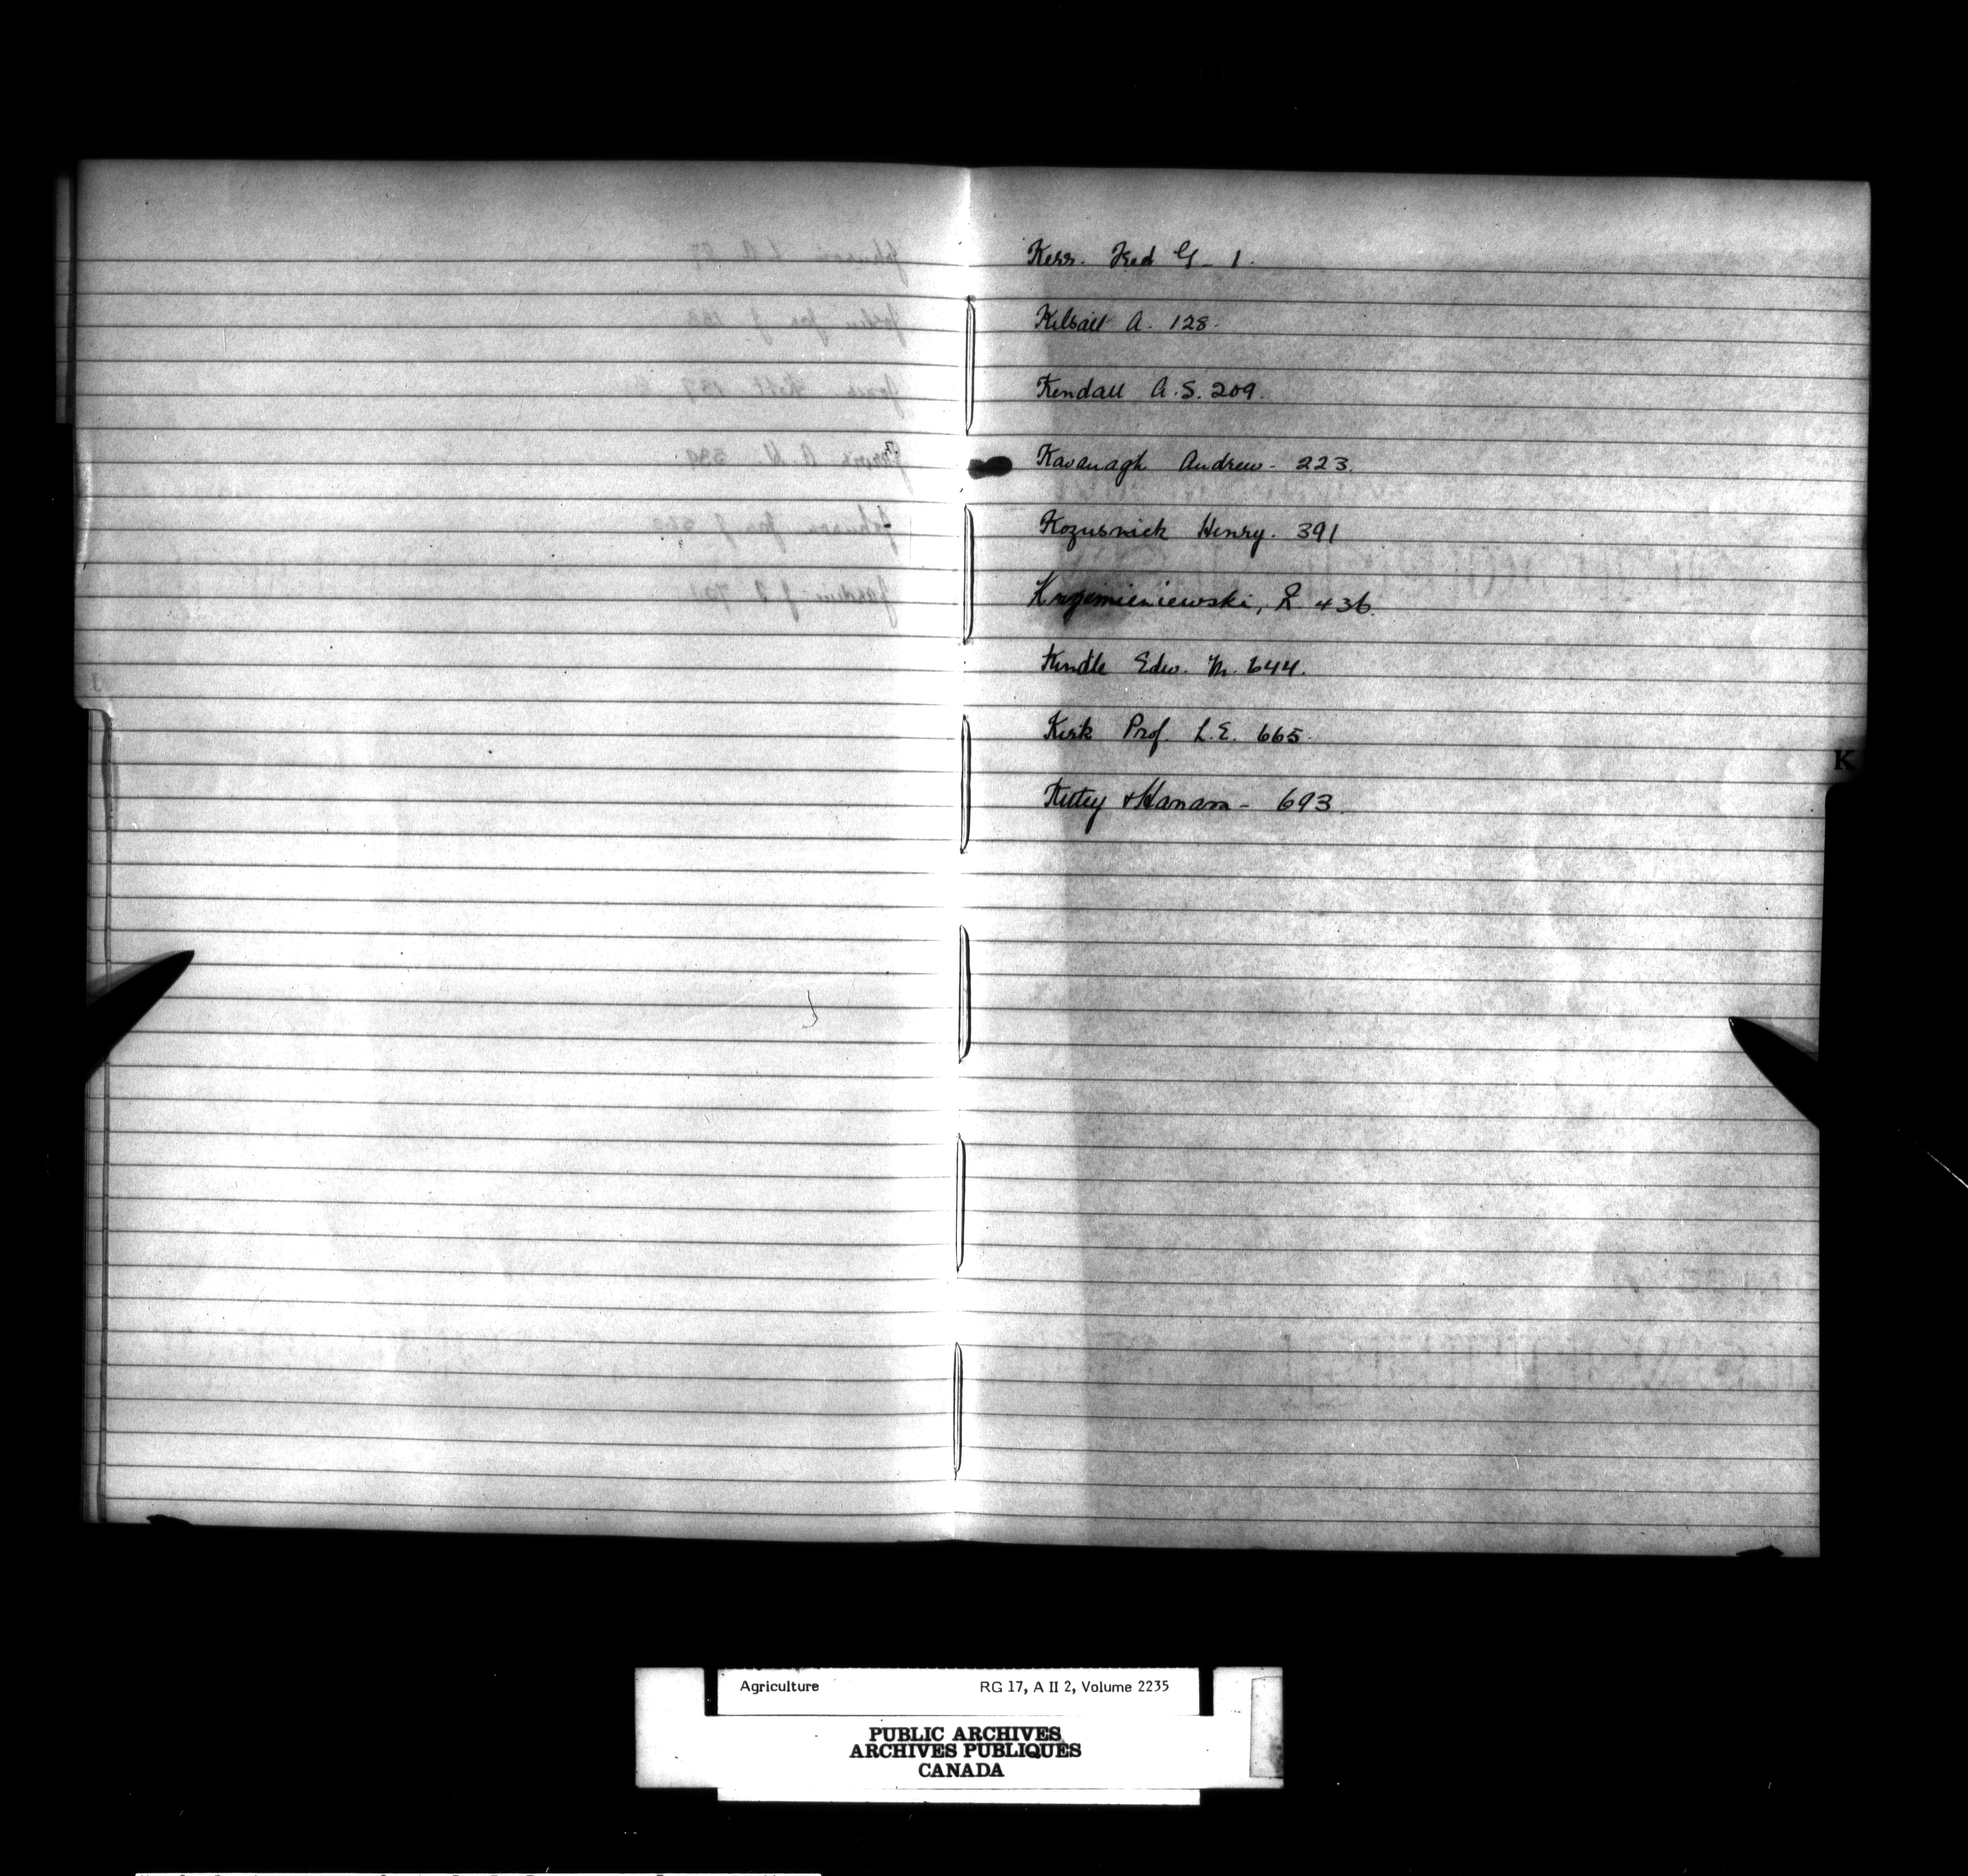 Kerr. Fred G - 1.
Kilsall A. 128.
Kendall A.S. 209.
Kavanagh Andrew - 223.
Kozusnick Henry. 391
Krzemieniewski, L 436.
Kindle Edw. M. 644.
Kirk Prof. L.E. 665.
& Hanam - 693
K
Agriculture RG 17, A II 2, Volume 2235
PUBLIC ARCHIVES
ARCHIVES PUBLIQUES
CANADA